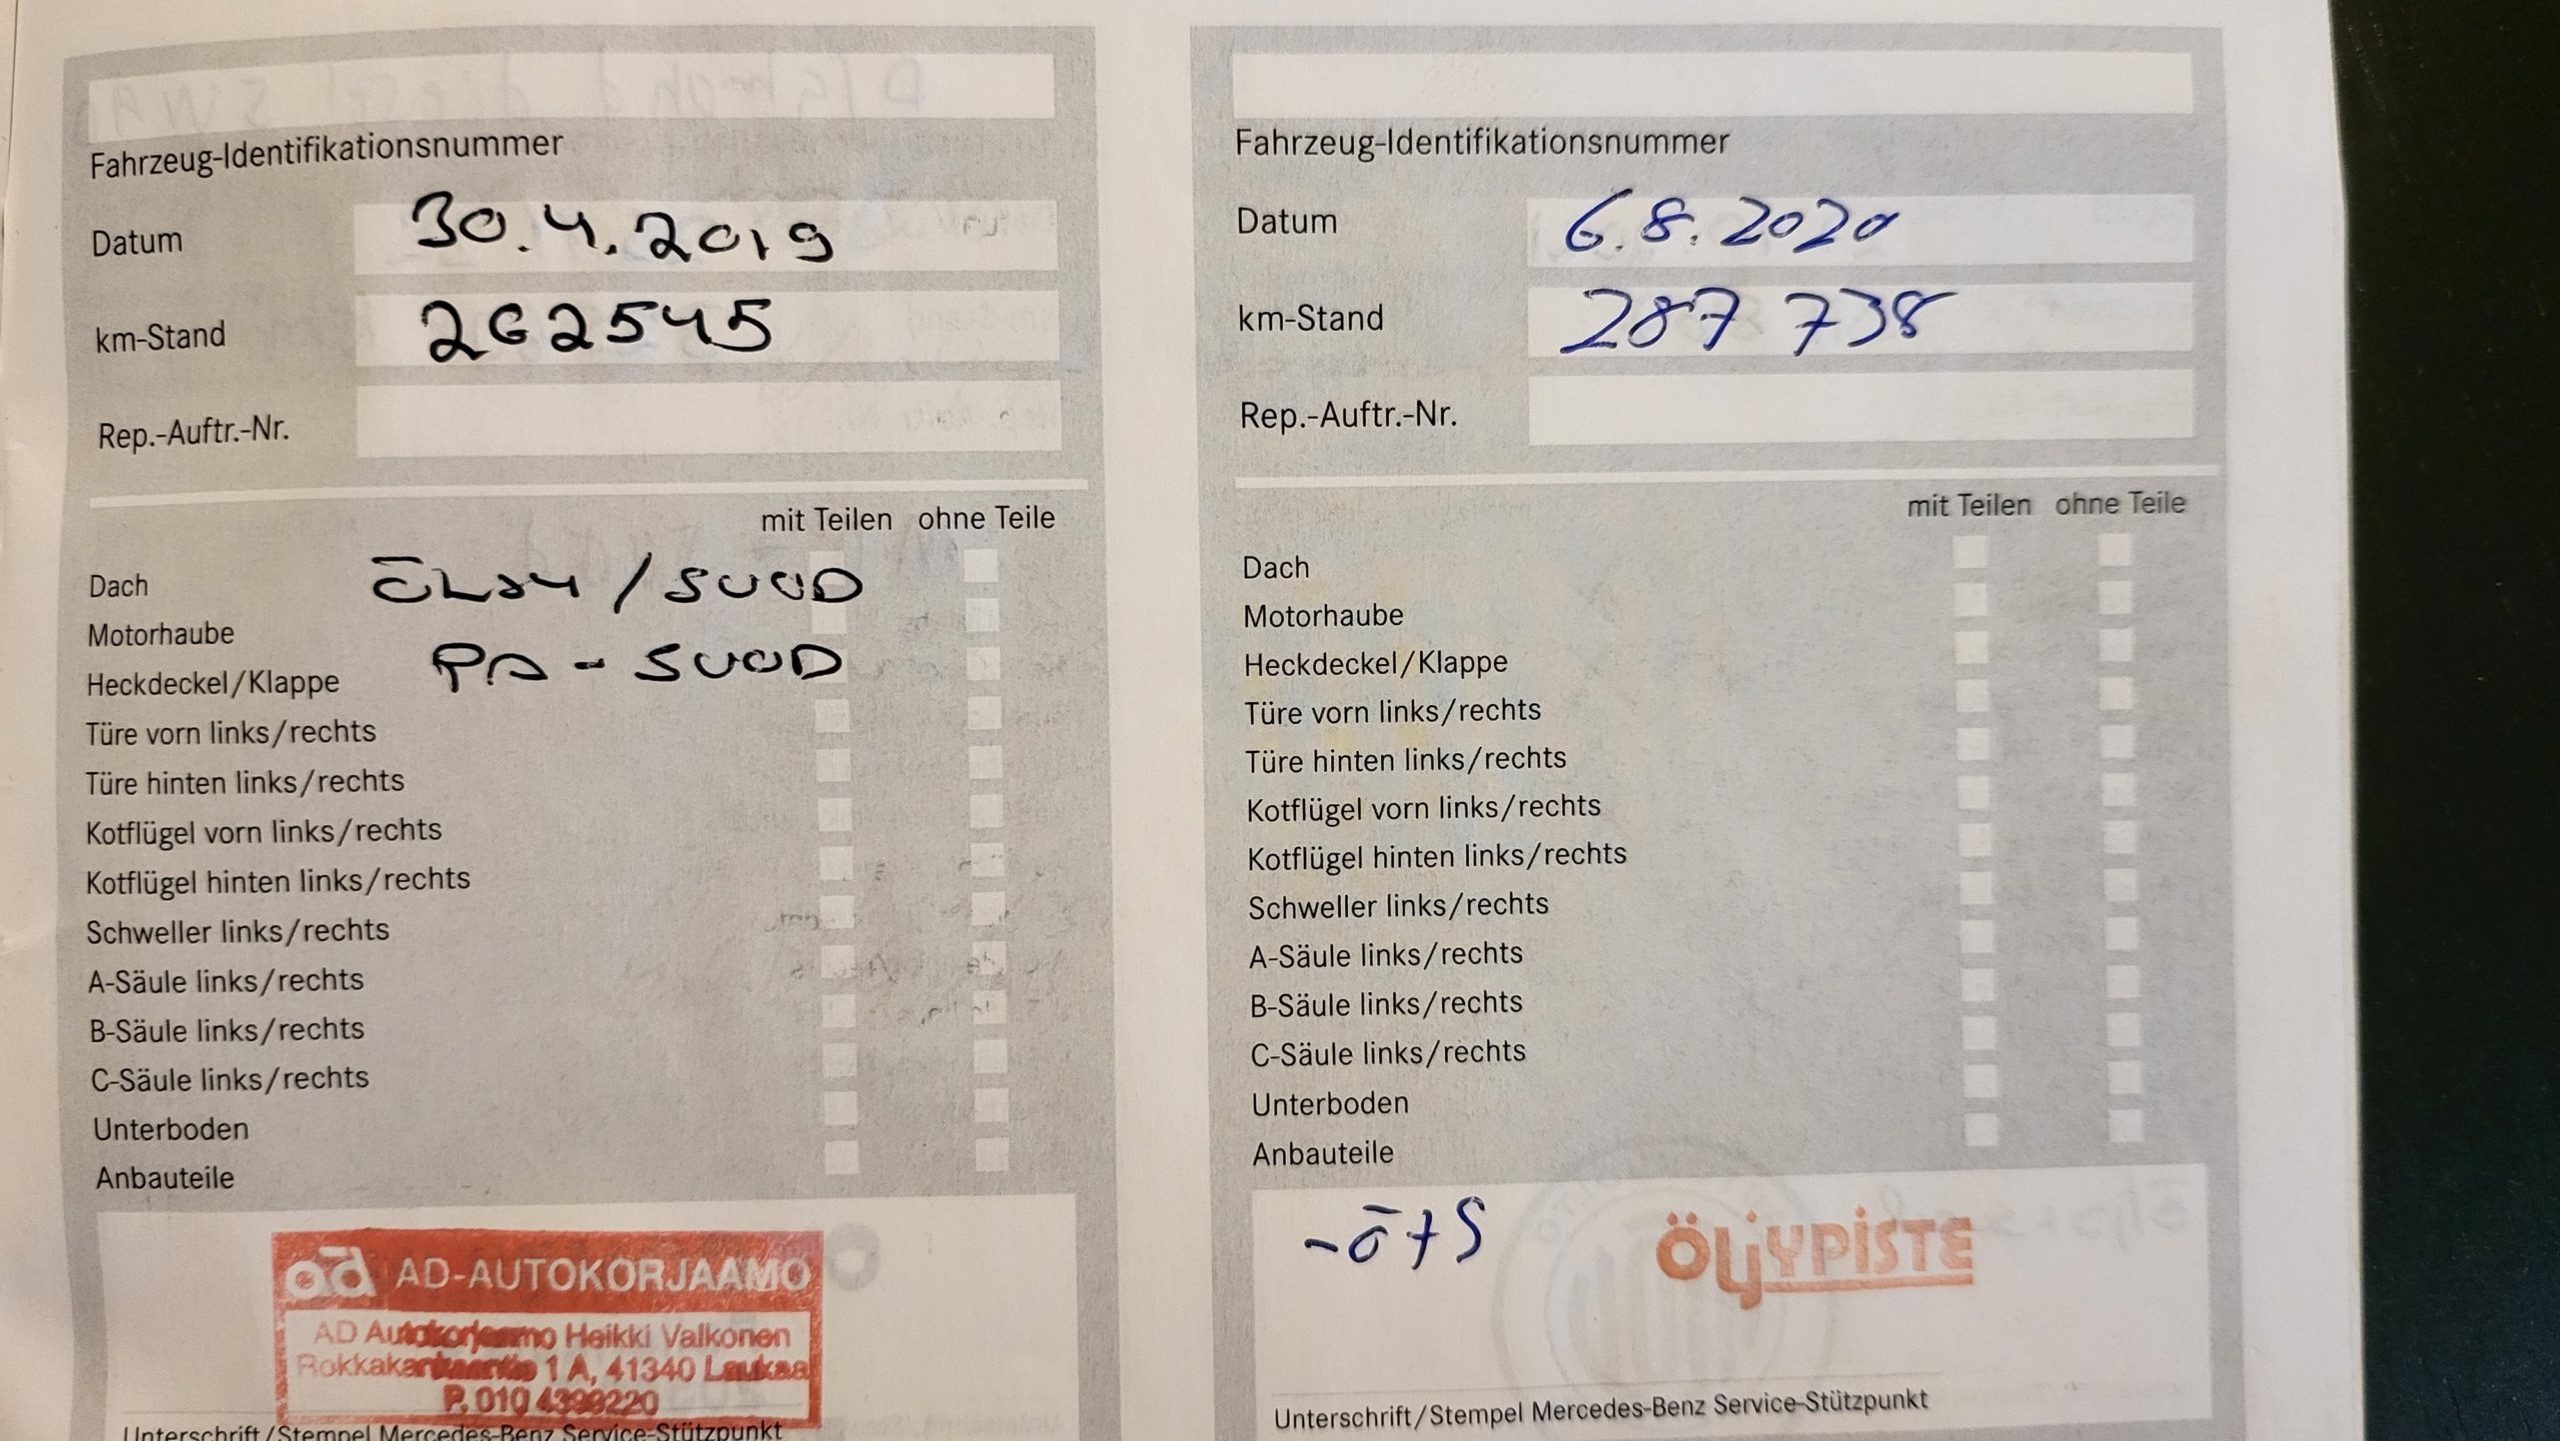 Fahrzeug-Identifikationsnummer
Datum 30.4.2019
km-Stand 262545
Rep.-Auftr.-Nr.
mit Teilen ohne Teile
Dach ÖLJY/SUOD
Motorhaube
Heckdeckel/Klappe RA-SUOD
Türe vorn links/rechts
Türe hinten links/rechts
Kotflügel vorn links/rechts
Kotflügel hinten links/rechts
Schweller links/rechts
A-Säule links/rechts
B-Säule links/rechts
C-Säule links/rechts
Unterboden
Anbauteile
ad AD-AUTOKORJAAMO
AD Autokorjaamo Heikki Valkonen
1 A, 41340 Laukaa
P. 010 4399220
Unterschrift/Stempel Mercedes-Benz Service-Stützpunkt
Fahrzeug-Identifikationsnummer
Datum 6.8.2020
km-Stand 287 738
Rep.-Auftr.-Nr.
mit Teilen ohne Teile
Dach
Motorhaube
Heckdeckel/Klappe
Türe vorn links/rechts
Türe hinten links/rechts
Kotflügel vorn links/rechts
Kotflügel hinten links/rechts
Schweller links/rechts
A-Säule links/rechts
B-Säule links/rechts
C-Säule links/rechts
Unterboden
Anbauteile
-ö+S ÖLJYPISTE
Unterschrift/Stempel Mercedes-Benz Service-Stützpunkt